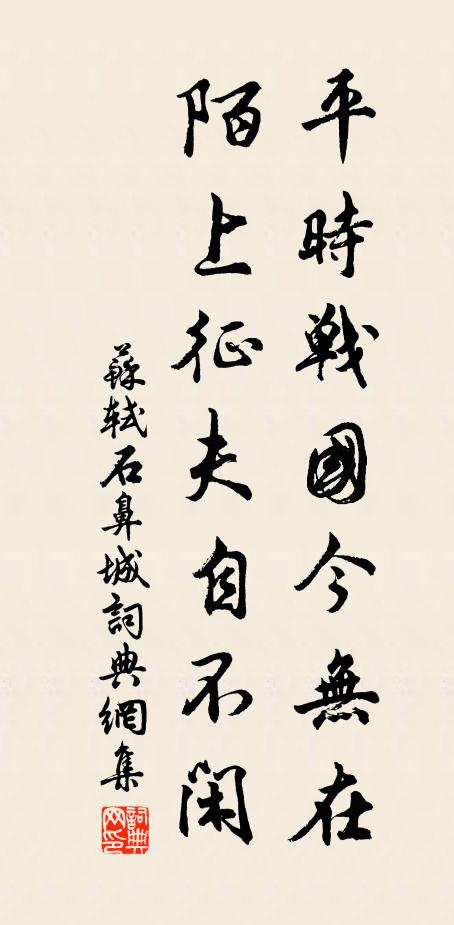 平時戰國今無在
陌上征夫自不閑
蘇軾石鼻城詞典網集
詞典網印